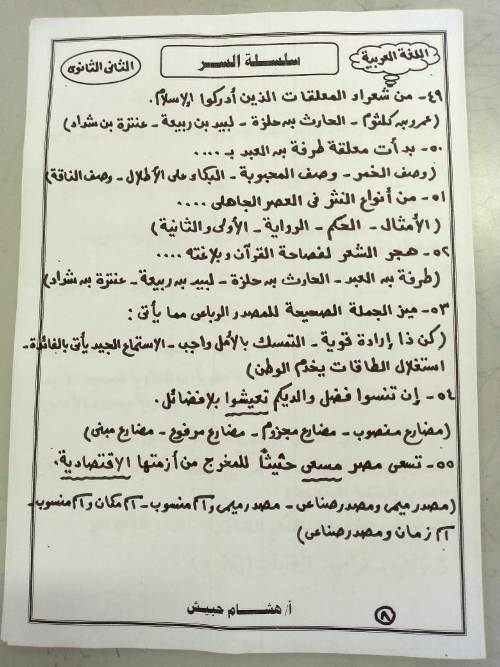 اللغة العربية
سلسلة السر
الثانى الثانوى
٤٩- من شعراء المعلقات الذين أدركوا الإسلام.
(عمرو بن كلثوم - الحارث بن حلزة - لبيد بن ربيعة - عنترة بن شداد)
٥٠- بدأت معلقة طرفة بن العبد بـ ....
(وصف الخمر - وصف المحبوبة - البكاء على الأطلال - وصف الناقة)
٥١- من أنواع النثر فى العصر الجاهلى ....
(الأمثال - الحكم - الرواية - الأولى والثانية)
٥٢- هجر الشعر لفصاحة القرآن وبلاغته ....
(طرفة بن العبد - الحارث بن حلزة - لبيد بن ربيعة - عنترة بن شداد)
٥٣- ميز الجملة الصحيحة للمصدر الرباعى مما يأتى :
(كن ذا إرادة قوية - التمسك بالأمل واجب - الاستماع الجيد يأتى بالفائدة -
استغلال الطاقات يخدم الوطن)
٥٤- إن تنسوا فضل والديكم تعيشوا بلا فضائل.
(مضارع منصوب - مضارع مجزوم - مضارع مرفوع - مضارع مبنى)
٥٥- تسعى مصر مسعى حثيثاً للمخرج من أزمتها الاقتصادية.
(مصدر ميمى ومصدر صناعى - مصدر ميمى واسم منسوب - اسم مكان واسم منسوب -
اسم زمان ومصدر صناعى)
أ/ هشام حبيش
٨